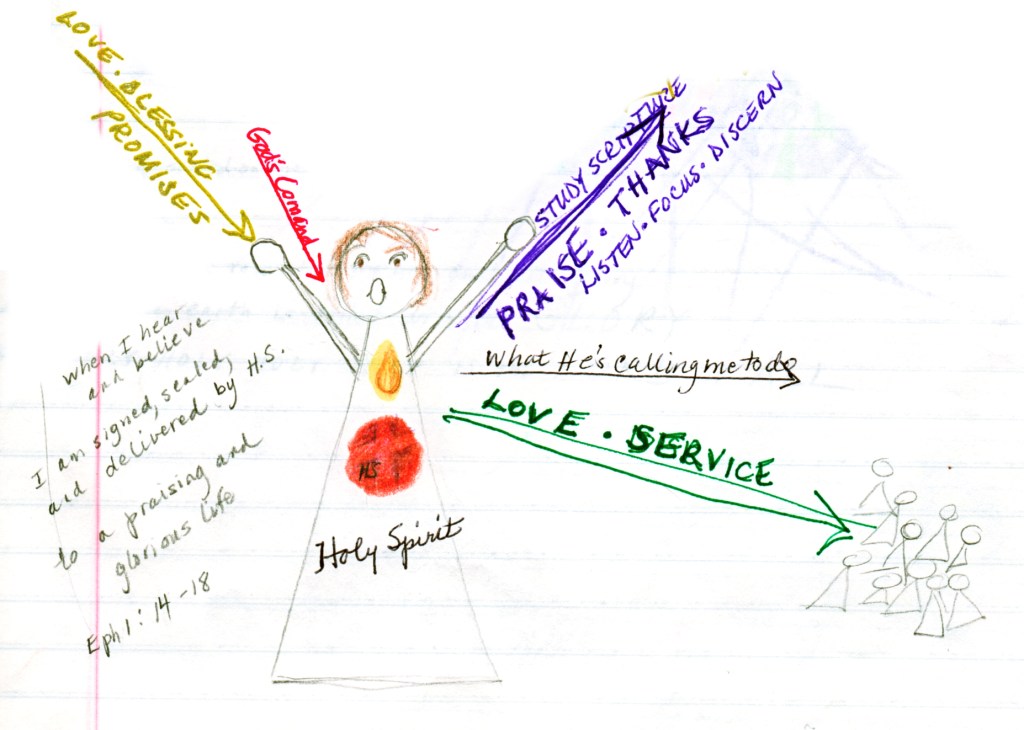 LOVE • BLESSING
PROMISES
God's Comand
STUDY SCRIPTURE
PRAISE • THANKS
LISTEN • FOCUS • DISCERN
What He's calling me to do
LOVE • SERVICE
HS
Holy Spirit
When I hear
and believe
I am signed, sealed,
and delivered by H.S.
to a praising and
glorious life
Eph 1: 14-18